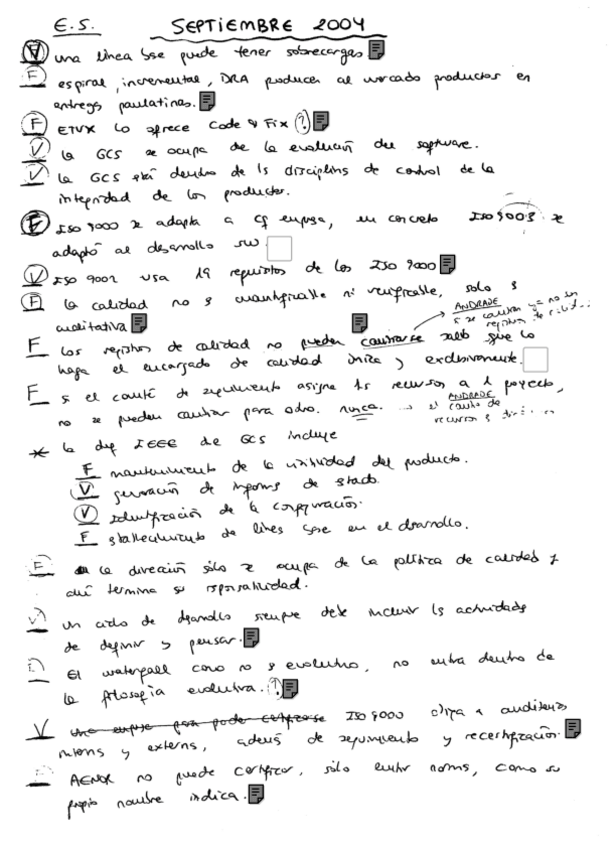 E.S. SEPTIEMBRE 2004
una línea base puede tener sobrecargas
F espiral, incremental, DRA producen al mercado productos en
entregas paulatinas.
F ETVX lo ofrece Code & Fix (?)
V la GCS se ocupa de la evolución del software.
V la GCS está dentro de ls disciplins de control de la
integridad de los productos.
F ISO 9000 se adapta a cq empresa, en concreto ISO 9003 se
adaptó al desarrollo sw.
V ISO 9002 usa 19 requisitos de los ISO 9000
F la calidad no s cuantificable ni verificable, solo s
cualitativa
ANDRADE
F los registros de calidad no pueden cambiarse salvo que lo
haga el encargado de calidad única y exclusivamente.
F si el comité de seguimiento asigna ls recursos a 1 proyecto,
no se pueden cambiar para otro. nunca. →
ANDRADE
el comité de
recursos s
* la def IEEE de GCS incluye
F mantenimiento de la del producto.
V generación de informs de estado.
V Identificación de la configuración.
F stablecimiento de líneas base en el dsarrollo.
F la dirección sólo se ocupa de la política de calidad y
ahí termina su rsponsabilidad.
V un ciclo de dsarrollo siempre debe incluir ls actividads
de definir y pensar.
El waterfall como no s evolutivo, no entra dentro de
la filosofía evolutiva. (?)
V Una empresa para poder certificarse ISO 9000 obliga a auditorias
interns y externs, además de seguimiento y recertificación.
AENOR no puede certificar, sólo emitir norms, como su
propio nombre indica.